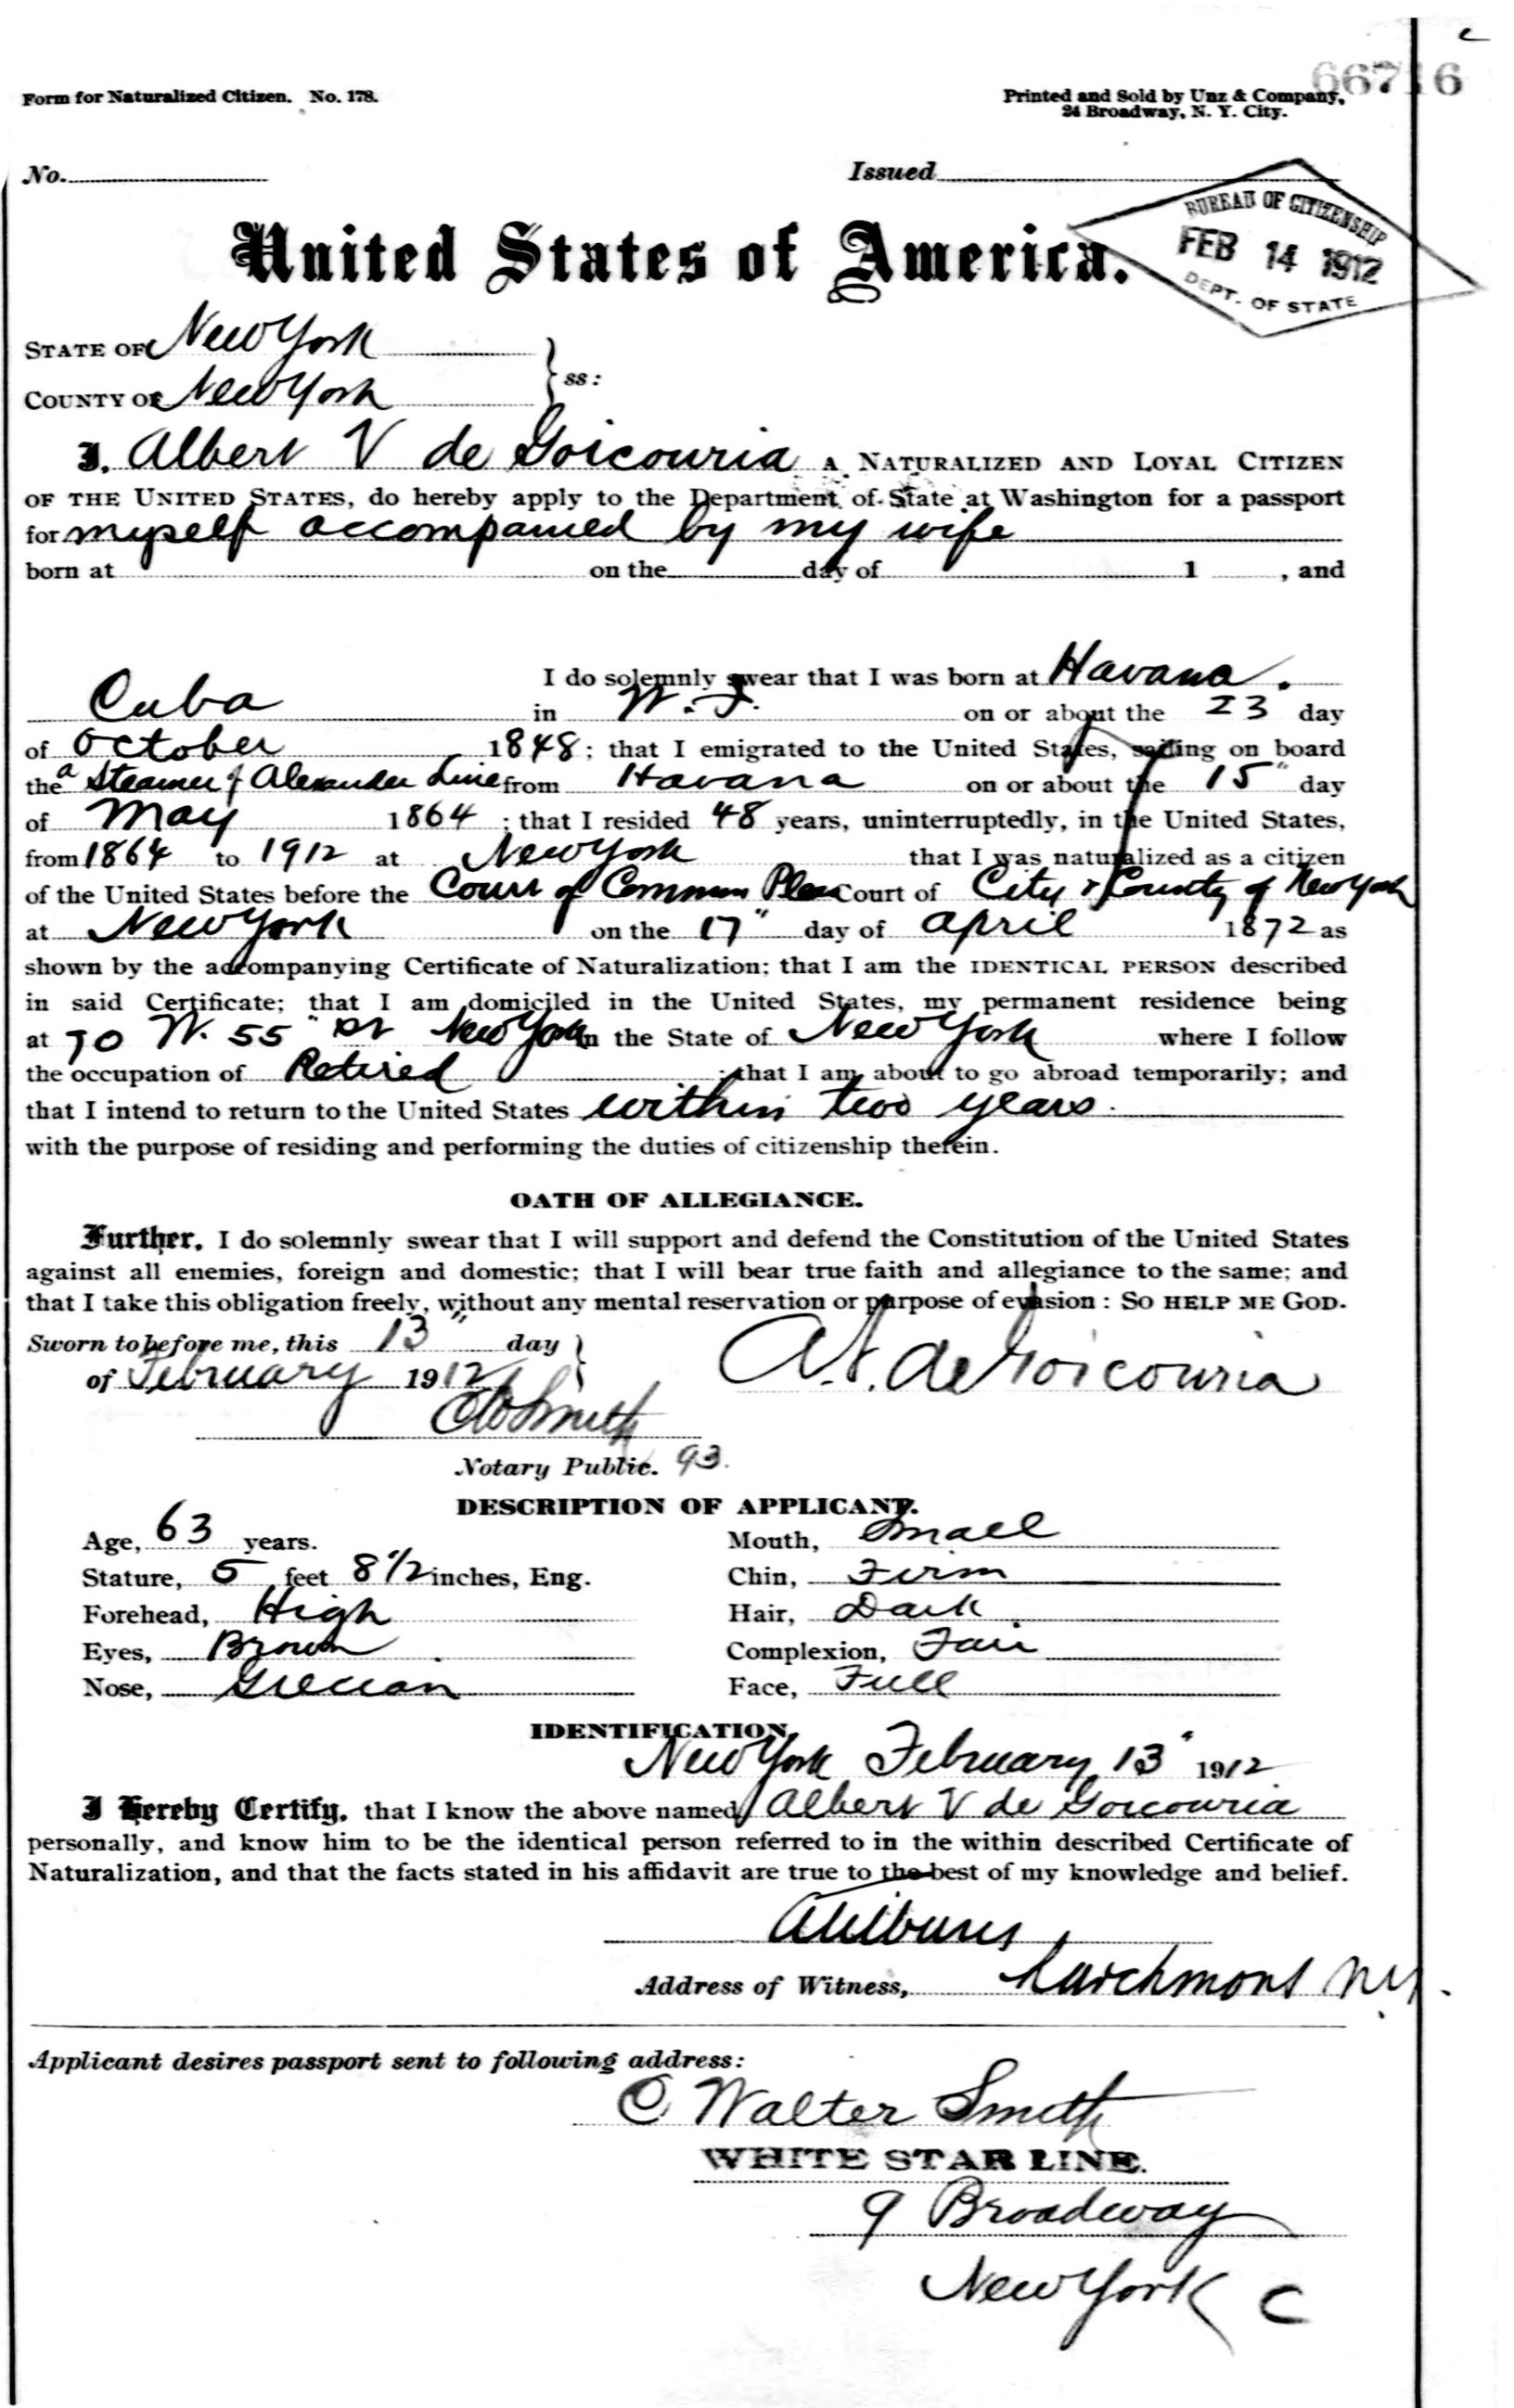 66716
Form for Naturalized Citizen. No. 178.
Printed and Sold by Unz & Company,
24 Broadway, N. Y. City.
No.
Issued
BUREAU OF CITIZENSHIP
FEB 14 1912
DEPT. OF STATE
United States of America.
STATE OF New York
COUNTY OF New York
ss:
I, Albert V de Goicouria A NATURALIZED AND LOYAL CITIZEN
OF THE UNITED STATES, do hereby apply to the Department of State at Washington for a passport
for myself accompanied by my wife
born at on the day of 1 , and
I do solemnly swear that I was born at Havana.
Cuba in W. I. on or about the 23 day
of October 1848; that I emigrated to the United States, sailing on board
the a Steamer of Alexander Line from Havana on or about the 15" day
of May 1864; that I resided 48 years, uninterruptedly, in the United States,
from 1864 to 1912 at New York that I was naturalized as a citizen
of the United States before the Court of Common Pleas Court of City & County of New York
at New York on the 17" day of April 1872 as
shown by the accompanying Certificate of Naturalization; that I am the IDENTICAL PERSON described
in said Certificate; that I am domiciled in the United States, my permanent residence being
at 70 W. 55" St New York in the State of New York where I follow
the occupation of Retired ; that I am about to go abroad temporarily; and
that I intend to return to the United States within two years.
with the purpose of residing and performing the duties of citizenship therein.
OATH OF ALLEGIANCE.
Further, I do solemnly swear that I will support and defend the Constitution of the United States
against all enemies, foreign and domestic; that I will bear true faith and allegiance to the same; and
that I take this obligation freely, without any mental reservation or purpose of evasion: SO HELP ME GOD.
Sworn to before me, this 13" day
of February 1912
A. V. de Goicouria
C W Smith
Notary Public. 93.
DESCRIPTION OF APPLICANT.
Age, 63 years.
Mouth, Small
Stature, 5 feet 8 1/2 inches, Eng.
Chin, Firm
Forehead, High
Hair, Dark
Eyes, Brown
Complexion, Fair
Nose, Grecian
Face, Full
IDENTIFICATION.
New York February 13" 1912
I Hereby Certify, that I know the above named Albert V de Goicouria
personally, and know him to be the identical person referred to in the within described Certificate of
Naturalization, and that the facts stated in his affidavit are true to the best of my knowledge and belief.
Address of Witness, Larchmont N.Y.
Applicant desires passport sent to following address:
C Walter Smith
WHITE STAR LINE.
9 Broadway
New York C